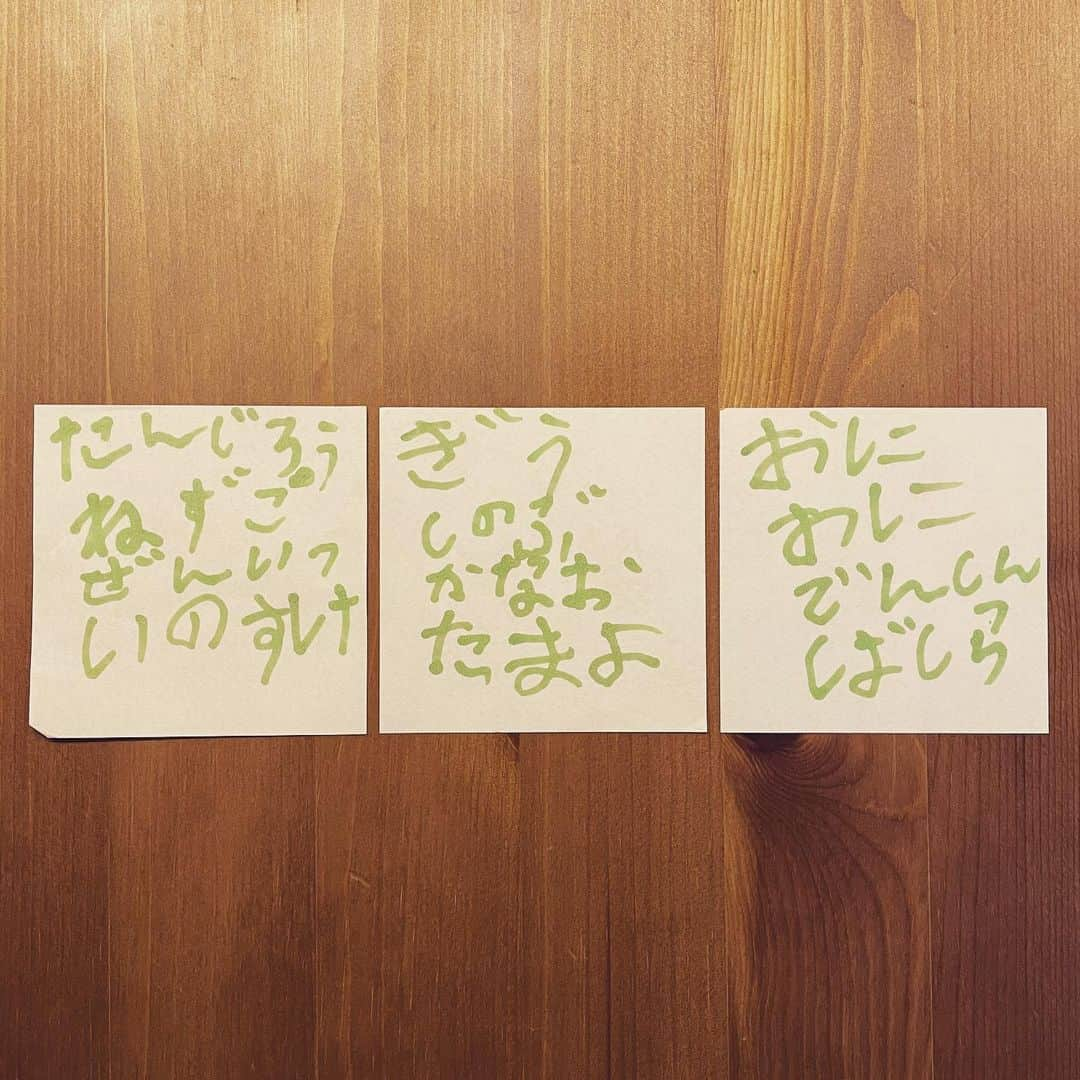 たんじろう
ねずこ
ぜんいつ
いのすけ
ぎゆう
しのぶ
かなお
たまよ
おに
おに
でんしん
ばしら